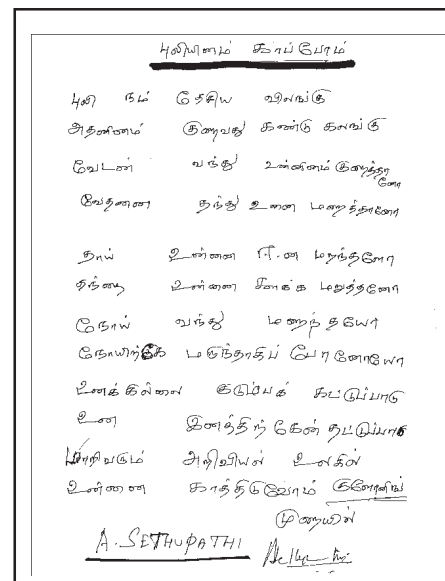 புலியினம் காப்போம்
புலி நம் தேசிய விலங்கு
அதனினம் குறைவது கண்டு கலங்கு
வேடன் வந்து உன்னினம் குறைத்தானோ
வேதனை தந்து உனை மறைத்தானோ
தாய் உன்னை மறந்தனோ
தந்தை உன்னை மறுத்தனோ
நோய் வந்து மறைந்தாயோ
நோயிற்கே மருந்தாகிப் போனாயோ
உனக்கில்லை குடும்பக் கட்டுப்பாடு
உன் இனத்திற்கேன் தட்டுப்பாடு
மாறிவரும் அறிவியல் உலகில்
உன்னை காத்திடுவோம் குளோனிங்
முறையில்
A. SETHUPATHI